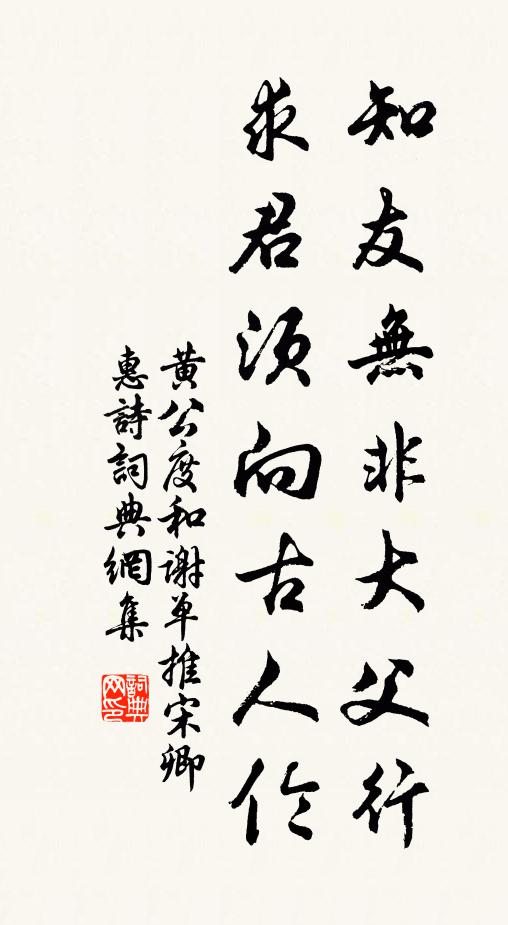 知友無非大父行
求君須向古人伶
黄公度和谢单推宋卿
惠詩詞典網集
詞典
网印